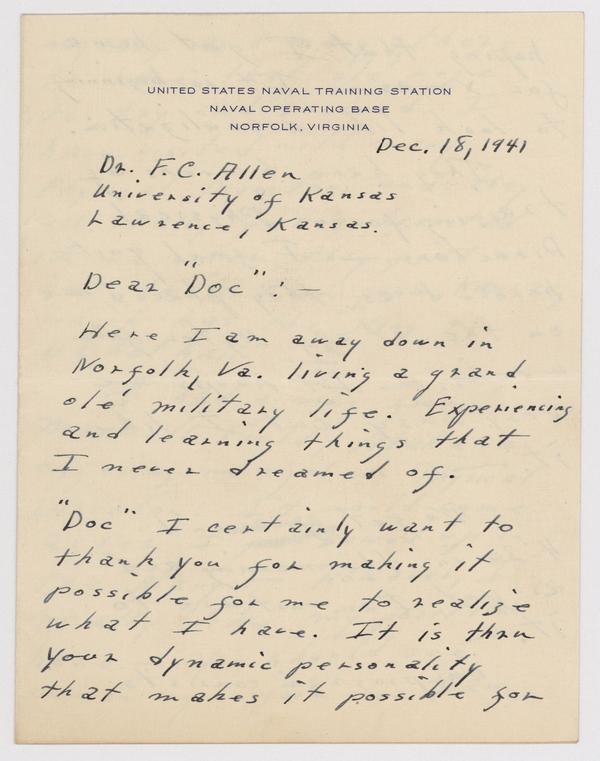 UNITED STATES NAVAL TRAINING STATION
NAVAL OPERATING BASE
NORFOLK, VIRGINIA
Dec. 18, 1941
Dr. F. C. Allen
University of Kansas
Lawrence, Kansas.
Dear "Doc":—
Here I am away down in
Norfolk, Va. living a grand
ole' military life. Experiencing
and learning things that
I never dreamed of.
"Doc" I certainly want to
thank you for making it
possible for me to realize
what I have. It is thru
your dynamic personality
that makes it possible for